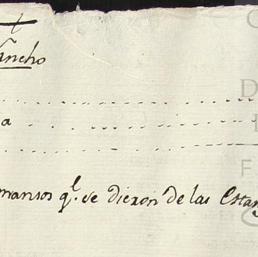 ancho
a
mansos q.^l se dieron de las Estan